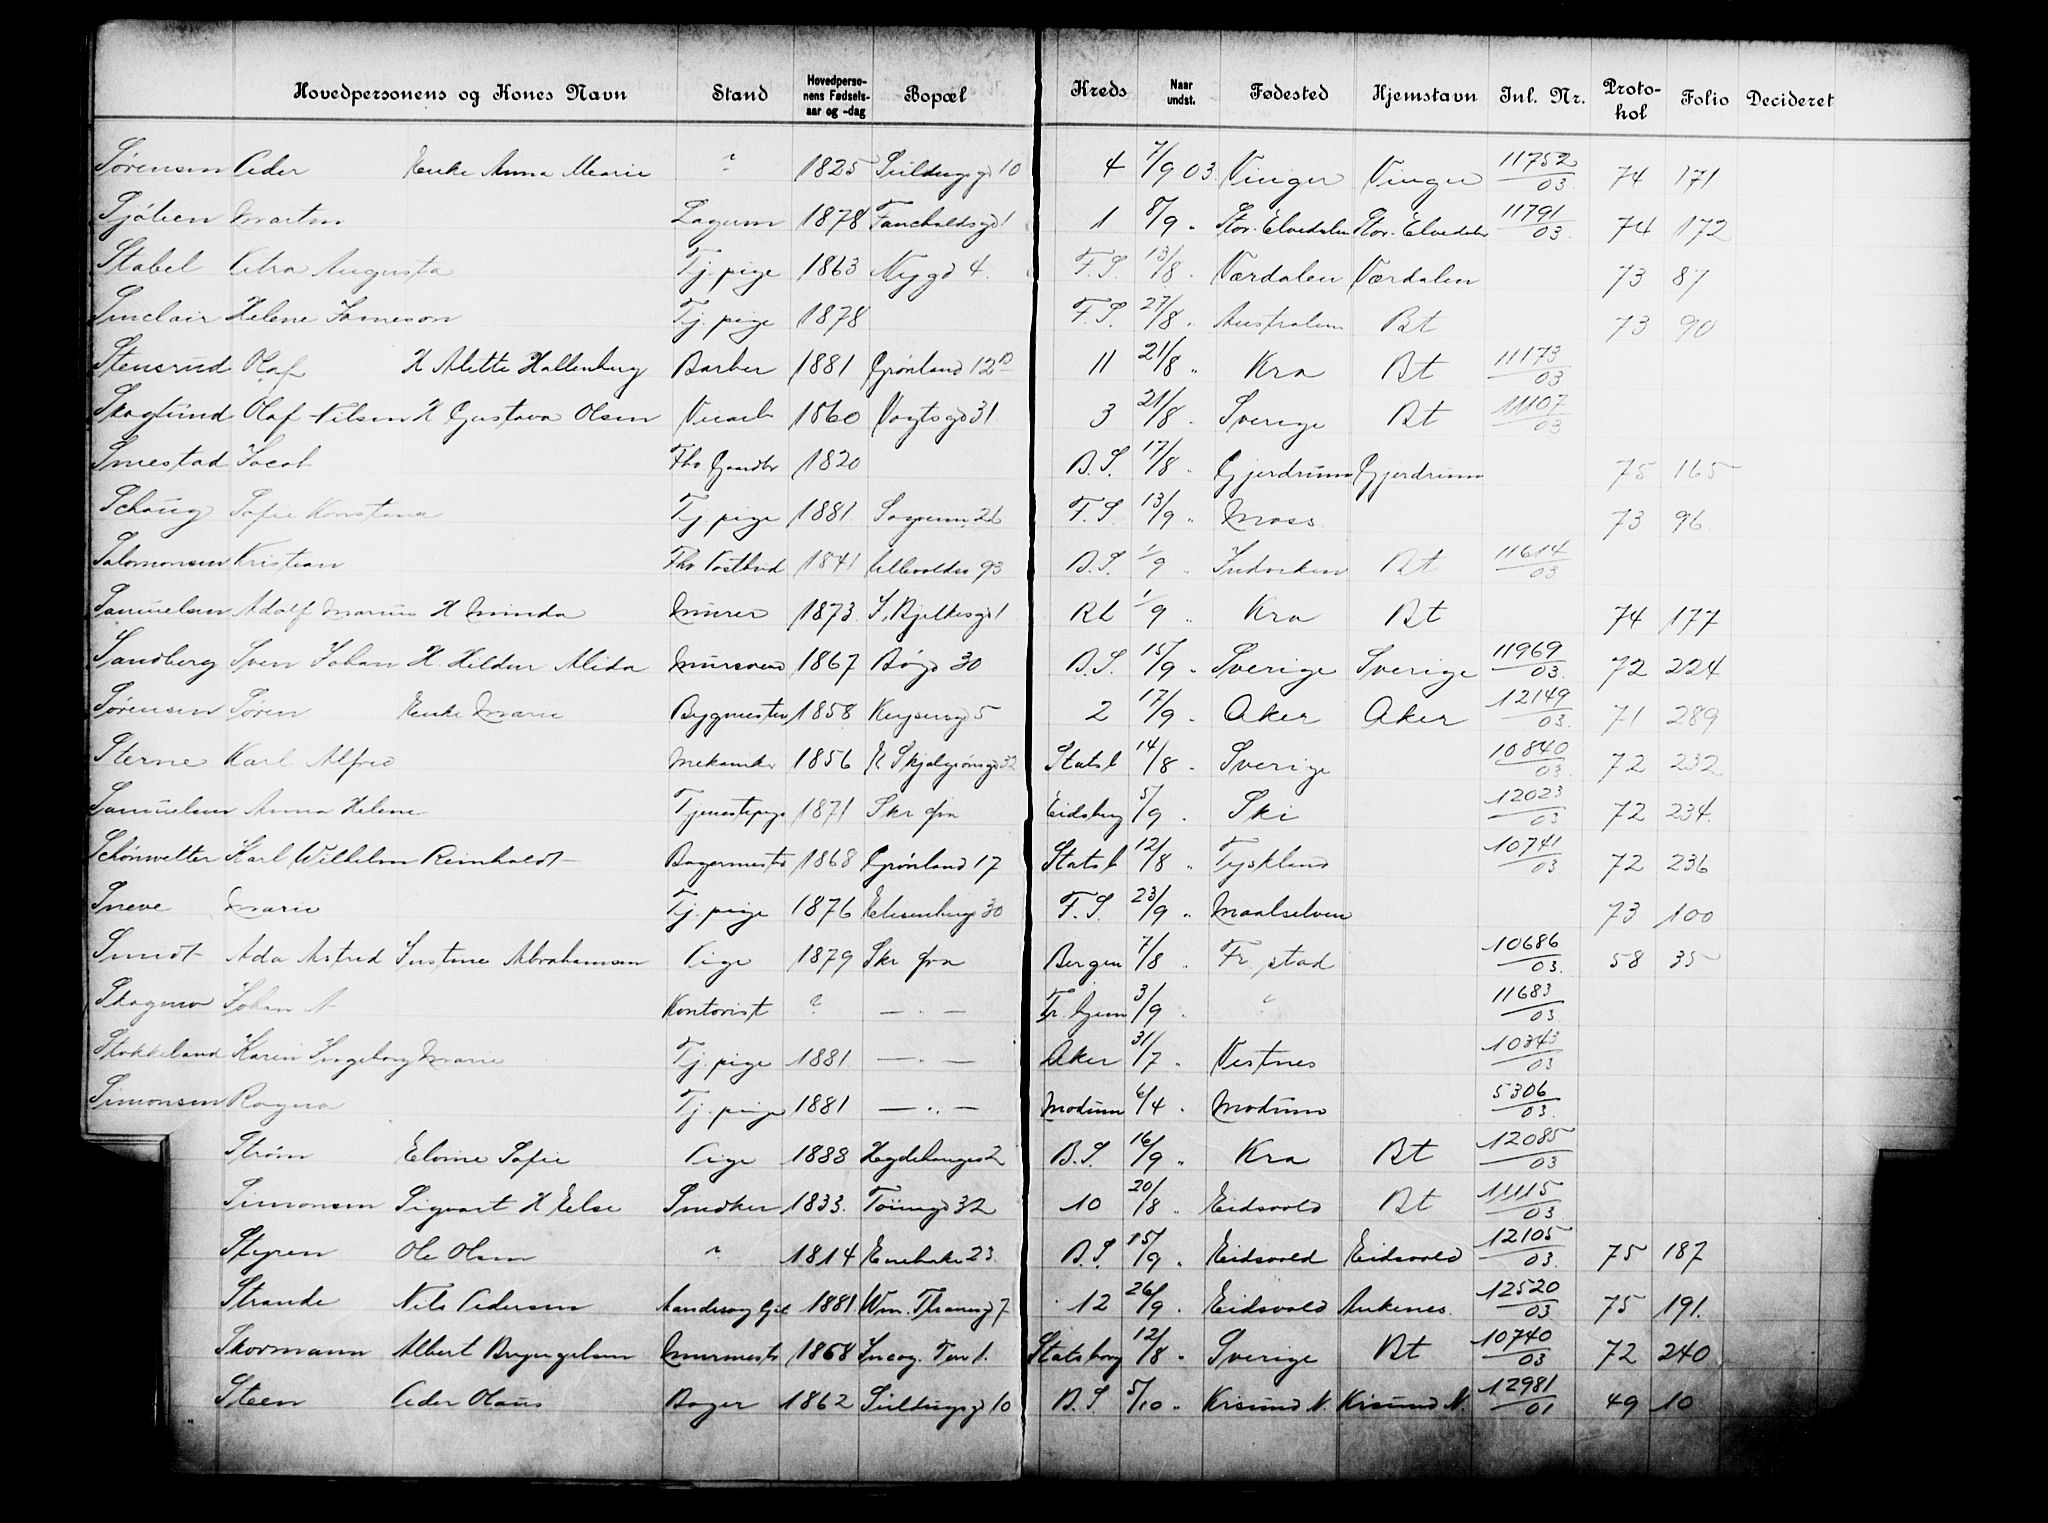 Hovedpersonens og Kones Navn Stand Hovedperso-nens Fødsels-aar og -dag Bopæl Kreds Naar undst. Fødested Hjemstavn Inl. Nr. Proto-kol Folio Decideret
Sørensen Peder Enke Anna Marie ? 1825 10 4 7/9 03. Vinger Vinger 11752/03. 74 171
Sjølien Martin 1878 Fauchaldsgd 1 1 8/9 " Stor-Elvedalen Stor-Elvedalen 11791/03. 74 172
Stabel Petra Augusta Tj. pige 1863 Nygd 4. F.S. 13/8 " Værdalen Værdalen 73 87
Sinclair Helene Jameson Tj. pige 1878 F.S. 27/8 " Australien Bt 73 90
Stensrud Olaf H Alette Hallenberg Barber 1881 Grønland 12 11 21/8 " Kra Bt 11173/03
Skoglund Olaf Nilsen H Gustava Olsen 1860 Vogtsgd 31 3 21/8 " Sverige Bt 11107/03
Smestad Jacob Fhv Gaardbr 1820 B.S. 17/8 " Gjerdrum Gjerdrum 75 165
Schaug Sofie Konstanse Tj. pige 1881. F.S. 13/9 " Moss. 73 96.
Salomonsen Kristian Fhv Postbud 1841 Ullevoldsv 93 B.S. 1/9 " Bt 11614/03
Samuelsen Adolf Marius H Minda Murer 1873. J. Bjelkesgd 1 1/9 " Kra Bt 74 177
Sandberg Sven Johan H. Hildur Alida Mursvend 1867 Bøgd 30 B.S. 15/9 " Sverige Sverige 11969/03. 72 224
Sørensen Søren Enke Marie Bygmester 1858 Keysersgd 5 2 17/9 " Aker Aker 12149/03. 71 289
Sterne Karl Alfred Mekaniker 1856 E Skjalgsønsgd 32 Statsb 14/8 " Sverige 10840/03. 72 232
Samuelsen Anna Helene Tjenestepige 1871 Skr fra Eidsberg 5/9 " Ski 12023/03 72 234.
Schønwetter Karl Wilhelm Reinholdt Bagermester 1868 Grønland 17 Statsb 12/8 " Tyskland 10741/03 72 236
Sneve Marie Tj. pige 1876 Elisenbergv 30 F.S. 23/9 " Maalselven 73 100
Smidt Ada Astrid Justine Abrahamsen Pige 1879 Skr fra Bergen 7/8 " Fr. stad 10686/03. 58 35
Johan A Kontorist ? — " — Tr. hjem 3/9 " ? 11683/03
Stokkeland Karin Ingeborg Marie Tj. pige 1881 — " — Aker 31/7 " Vestnes 10343/03
Simonsen Ragna Tj. pige 1881 — " — Modum 6/4 " Modum 5306/03.
Strøm Elvine Sofie Pige 1888 Hegdehaugsv 2 B.S. 16/9 " Kra Bt 12085/03
Simonsen Sigvart H Else Snedker 1833. Tøiengd 32 10 20/8 " Eidsvold Bt 11115/03.
Styren Ole Olsen ? 1814 Enebakv 23. B.S. 15/9 " Eidsvold Eidsvold 12105/03. 75 187
Strande Nils Pedersen 1881. Wm. Thranesgd 7 12 26/9 " Eidsvold Ankenes. 12520/03 75 191.
Skormann Albert Bryngelsen Murmester 1868 Statsborg 12/8 " Sverige Bt 10740/03 72 240
Steen Peder Olaus Bager 1862 10 B.S. 5/10 " Krsund N. Krsund N. 12981/01 49 10